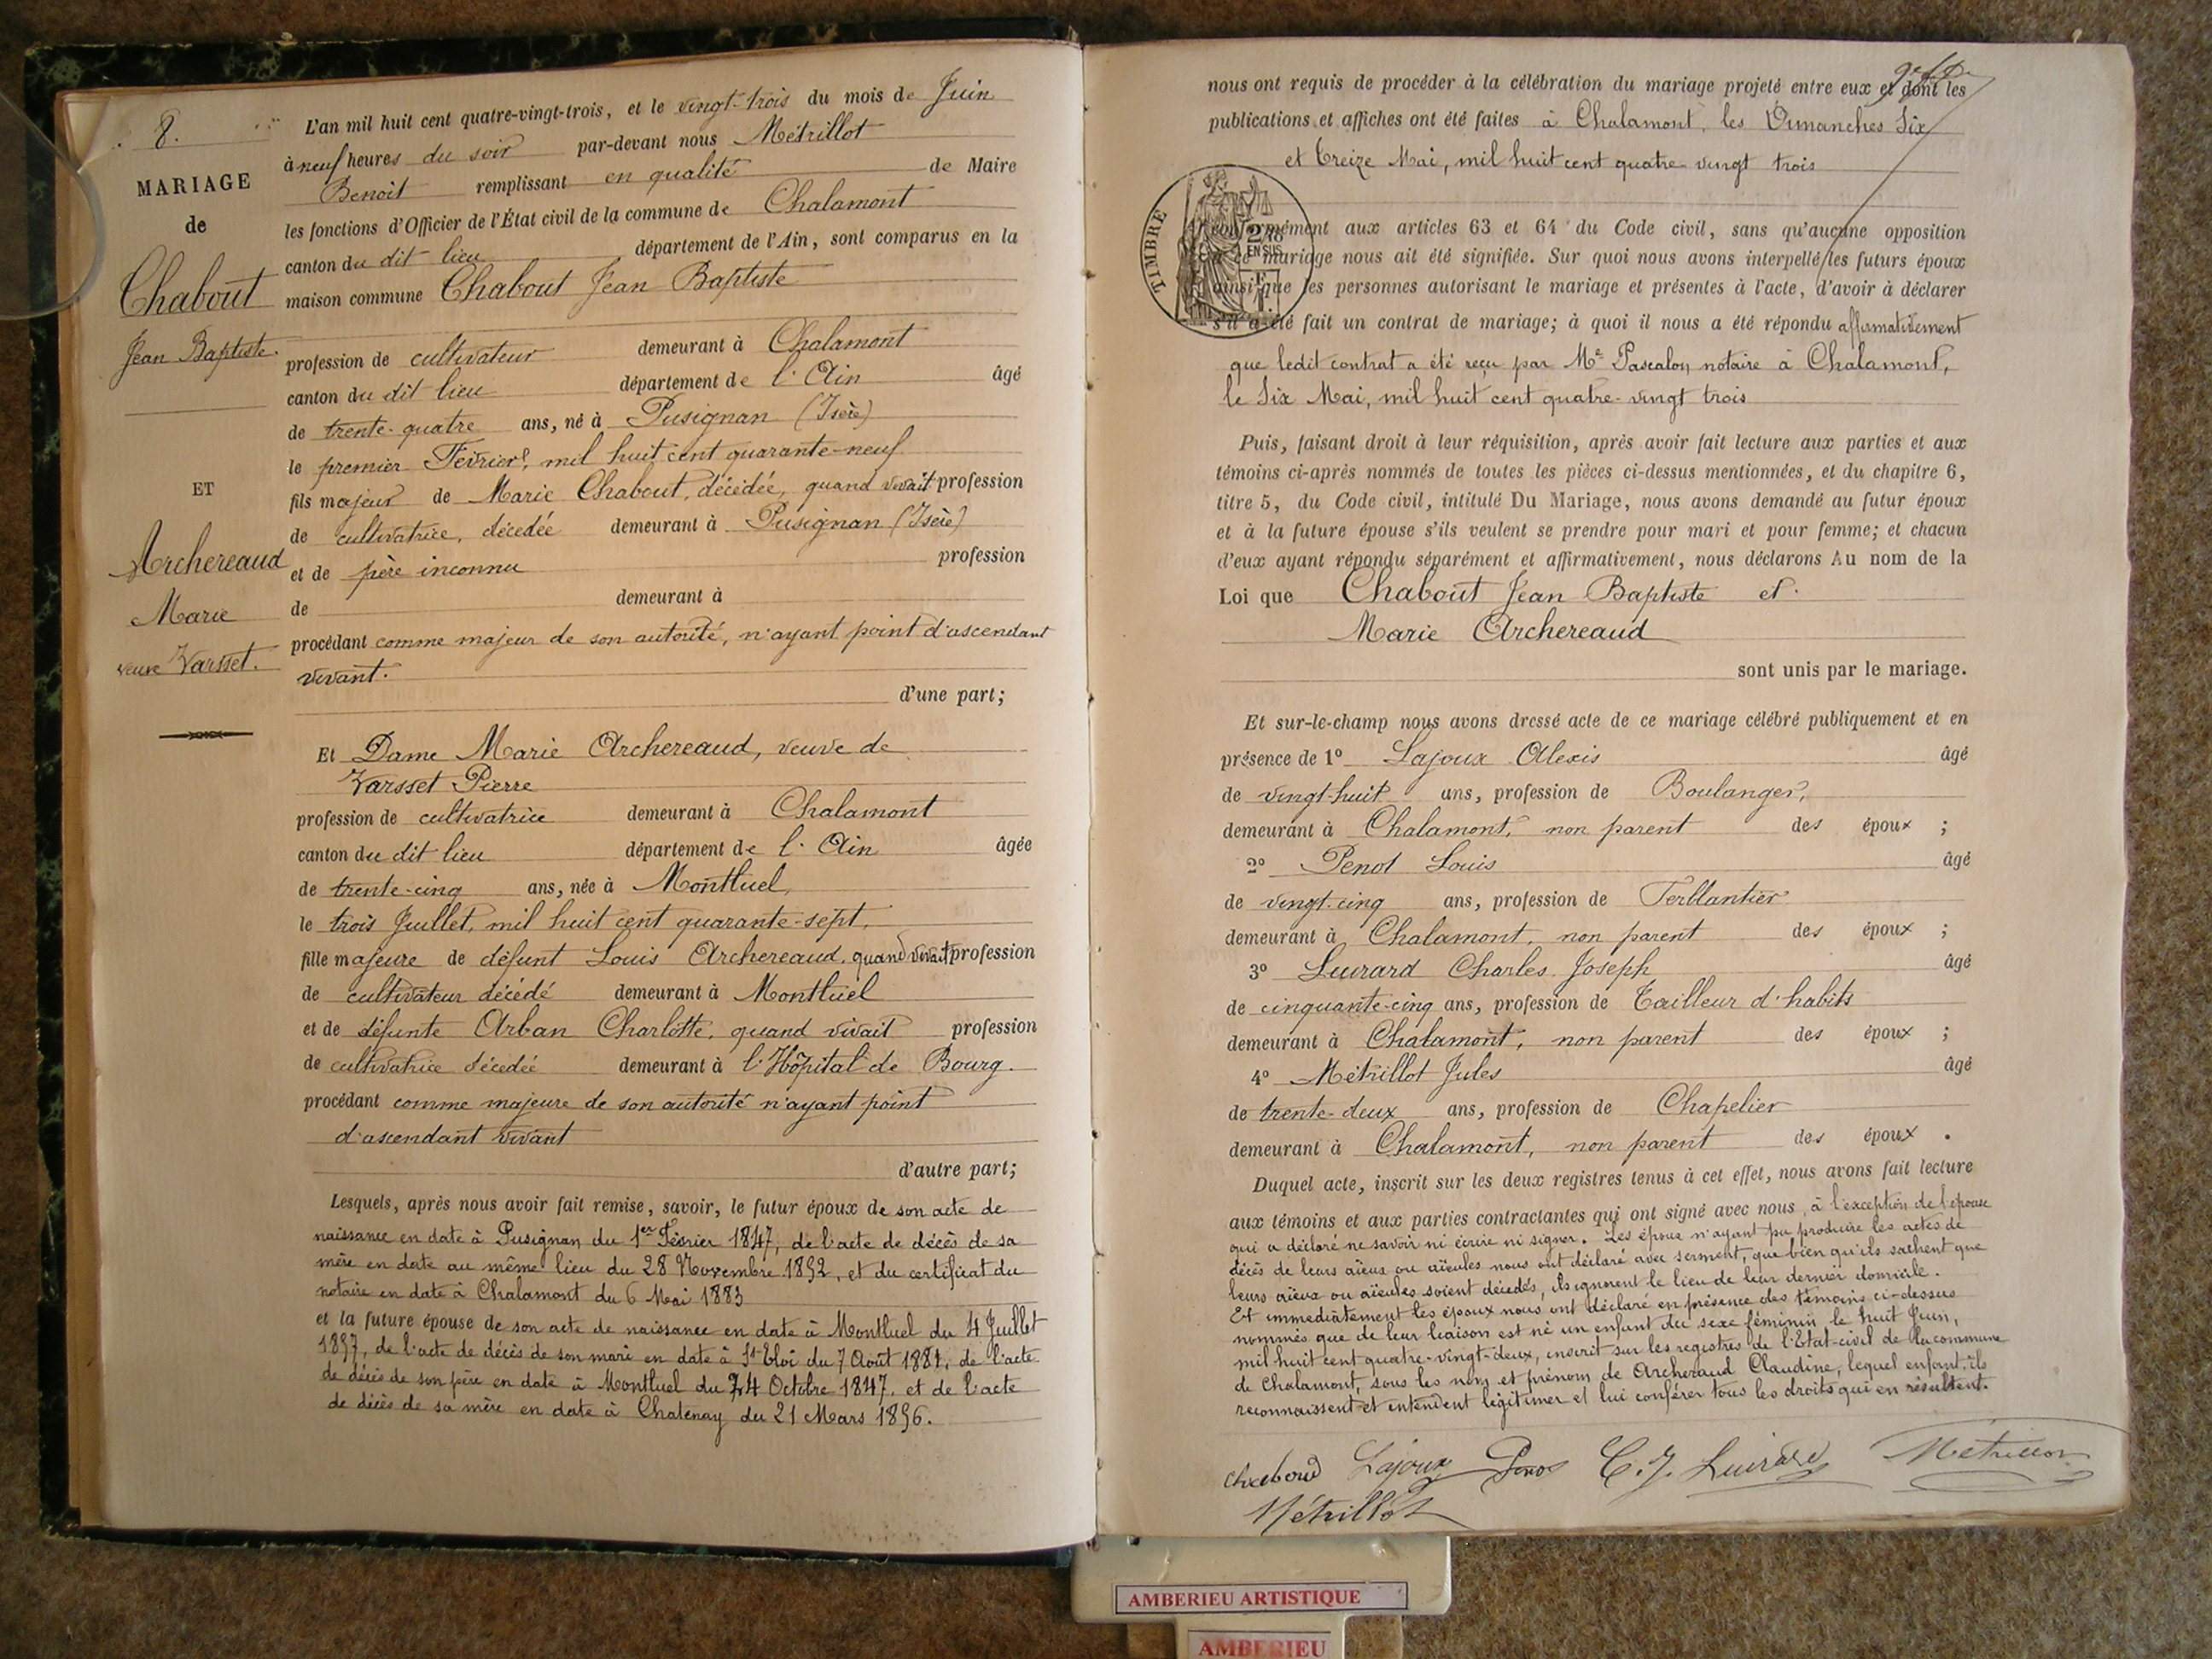 8.
MARIAGE
de
Chabout
Jean Baptiste.
ET
Archereaud
Marie
veuve Varsset.
L'an mil huit cent quatre-vingt-trois, et le vingt-trois du mois de Juin
à neuf heures du soir par-devant nous Métrillot
Benoit remplissant en qualité de Maire
les fonctions d'Officier de l'État civil de la commune de Chalamont
canton du dit lieu département de l'Ain, sont comparus en la
maison commune Chabout Jean Baptiste
profession de cultivateur demeurant à Chalamont
canton du dit lieu département de l'Ain âgé
de trente-quatre ans, né à Pusignan (Isère)
le premier Février, mil huit cent quarante-neuf
fils majeur de Marie Chabout, décédée, quand vivait profession
de cultivatrice, décédée demeurant à Pusignan (Isère)
et de père inconnu profession
de demeurant à
procédant comme majeur de son autorité, n'ayant point d'ascendant
vivant.
d'une part;
Et Dame Marie Archereaud, veuve de
Varsset Pierre
profession de cultivatrice demeurant à Chalamont
canton du dit lieu département de l'Ain âgée
de trente-cinq ans, née à Montluel
le trois Juillet, mil huit cent quarante-sept,
fille majeure de défunt Louis Archereaud, quand vivait profession
de cultivateur décédé demeurant à Montluel
et de défunte Arban Charlotte, quand vivait profession
de cultivatrice décédée demeurant à l'Hôpital de Bourg.
procédant comme majeure de son autorité n'ayant point
d'ascendant vivant
d'autre part;
Lesquels, après nous avoir fait remise, savoir, le futur époux de son acte de
naissance en date à Pusignan du 1er Février 1847, de l'acte de décès de sa
mère en date au même lieu du 28 Novembre 1892, et du certificat du
notaire en date à Chalamont du 6 Mai 1883
et la future épouse de son acte de naissance en date à Montluel du 4 Juillet
de l'acte de décès de son mari en date à St Eloi du 7 Août 1881, de l'acte
de décès de son père en date à Montluel du 24 Octobre 1847, et de l'acte
de décès de sa mère en date à Chatenay du 21 Mars
nous ont requis de procéder à la célébration du mariage projeté entre eux et dont les
publications et affiches ont été faites à Chalamont, les Dimanches Six
et Treize Mai, mil huit cent quatre vingt trois
TIMBRE
2/10
EN SUS
conformément aux articles 63 et 64 du Code civil, sans qu'aucune opposition
à ce mariage nous ait été signifiée. Sur quoi nous avons interpellé les futurs époux
ainsi que les personnes autorisant le mariage et présentes à l'acte, d'avoir à déclarer
s'il a été fait un contrat de mariage; à quoi il nous a été répondu affirmativement
que ledit contrat a été reçu par Me Pascalon notaire à Chalamont,
le Six Mai, mil huit cent quatre-vingt trois
Puis, faisant droit à leur réquisition, après avoir fait lecture aux parties et aux
témoins ci-après nommés de toutes les pièces ci-dessus mentionnées, et du chapitre 6,
titre 5, du Code civil, intitulé Du Mariage, nous avons demandé au futur époux
et à la future épouse s'ils veulent se prendre pour mari et pour femme; et chacun
d'eux ayant répondu séparément et affirmativement, nous déclarons Au nom de la
Loi que Chabout Jean Baptiste et
Marie Archereaud
sont unis par le mariage.
Et sur-le-champ nous avons dressé acte de ce mariage célébré publiquement et en
présence de 1º Lajoux Alexis âgé
de vingt-huit ans, profession de Boulanger,
demeurant à Chalamont, non parent des époux ;
2º Penot Louis âgé
de vingt-cinq ans, profession de Ferblantier
demeurant à Chalamont, non parent des époux ;
3º Luirard Charles Joseph âgé
de cinquante-cinq ans, profession de Tailleur d'habits
demeurant à Chalamont, non parent des époux ;
4º Métrillot Jules âgé
de trente-deux ans, profession de Chapelier
demeurant à Chalamont, non parent des époux .
Duquel acte, inscrit sur les deux registres tenus à cet effet, nous avons fait lecture
aux témoins et aux parties contractantes qui ont signé avec nous, à l'exception de l'épouse
qui a déclaré ne savoir ni écrire ni signer. Les époux n'ayant pu produire les actes de
décès de leurs aïeux ou aïeules nous ont déclaré avec serment, que bien qu'ils sachent que
leurs aïeux ou aïeules soient décédés, ils ignorent le lieu de leur dernier domicile.
Et immédiatement les époux nous ont déclaré en présence des témoins ci-dessus
nommés que de leur liaison est né un enfant du sexe féminin le huit Juin,
mil huit cent quatre-vingt-deux, inscrit sur les registres de l'Etat-civil de la commune
de Chalamont, sous les nom et prénom de Archeraud Claudine, lequel enfant ils
reconnaissent et entendent légitimer et lui conférer tous les droits qui en résultent.
Chaboud Lajoux Penot C.J. Luirard Métrillot
Métrillot
AMBERIEU ARTISTIQUE
AMBERIEU